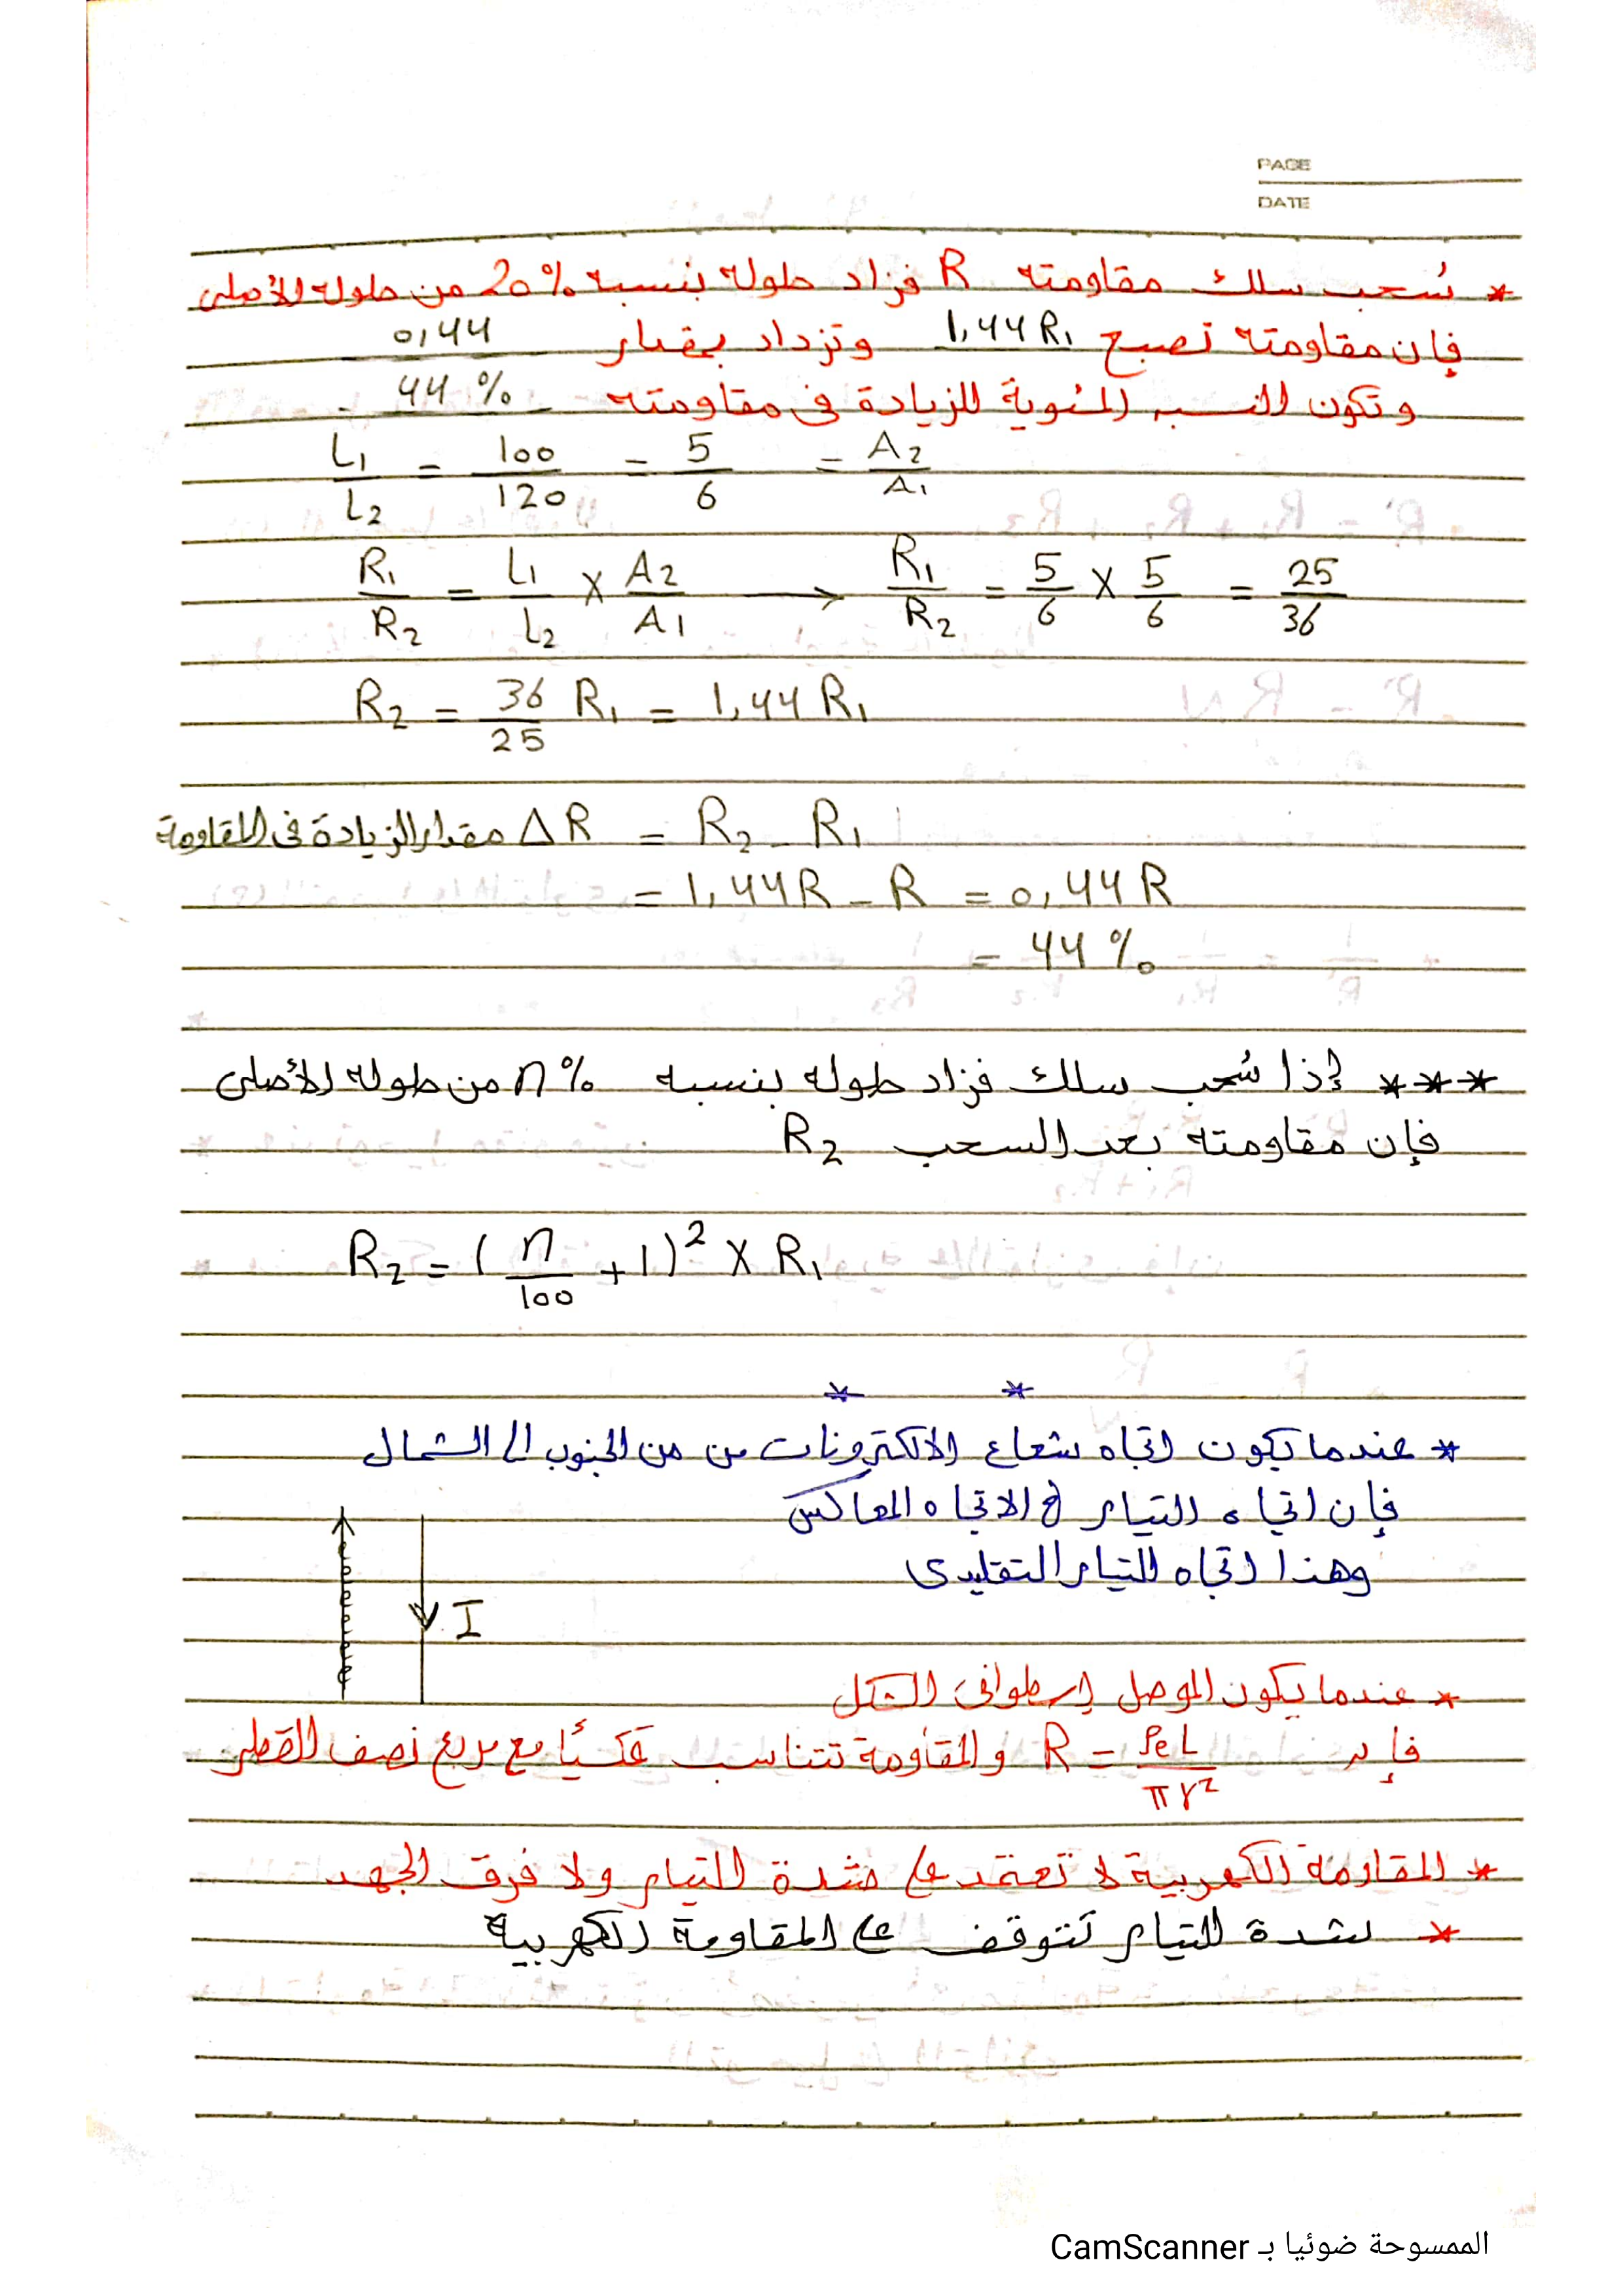 PAGE
DATE
* سُحب سلك مقاومته R فزاد طوله بنسبه 20% من طوله الأصلى
فإن مقاومته تصبح 1,44 R₁ وتزداد بمقدار 0,44
وتكون النسبه المئوية للزيادة فى مقاومته 44 %
L₁/L₂ = 100/120 = 5/6 = A₂/A₁
R₁/R₂ = L₁/L₂ × A₂/A₁ → R₁/R₂ = 5/6 × 5/6 = 25/36
R₂ = 36/25 R₁ = 1,44 R₁
مقدار الزيادة فى المقاومة ΔR = R₂ - R₁
= 1,44R - R = 0,44 R
= 44 %
*** إذا سُحب سلك فزاد طوله بنسبه n% من طوله الأصلى
فإن مقاومته بعد السحب R₂
R₂ = (n/100 + 1)² × R₁
* *
* عندما يكون اتجاه شعاع الالكترونات من من الجنوب الى الشمال
فإن اتجاه التيار فى الاتجاه المعاكس
وهذا اتجاه التيار التقليدى
I
* عندما يكون الموصل إسطوانى الشكل
فإن R = ρe L/πr² والمقاومة تتناسب عكسيًا مع مربع نصف القطر
* المقاومة الكهربية لا تعتمد على شدة التيار ولا فرق الجهد
* شدة التيار تتوقف على المقاومة الكهربية
الممسوحة ضوئيا بـ CamScanner